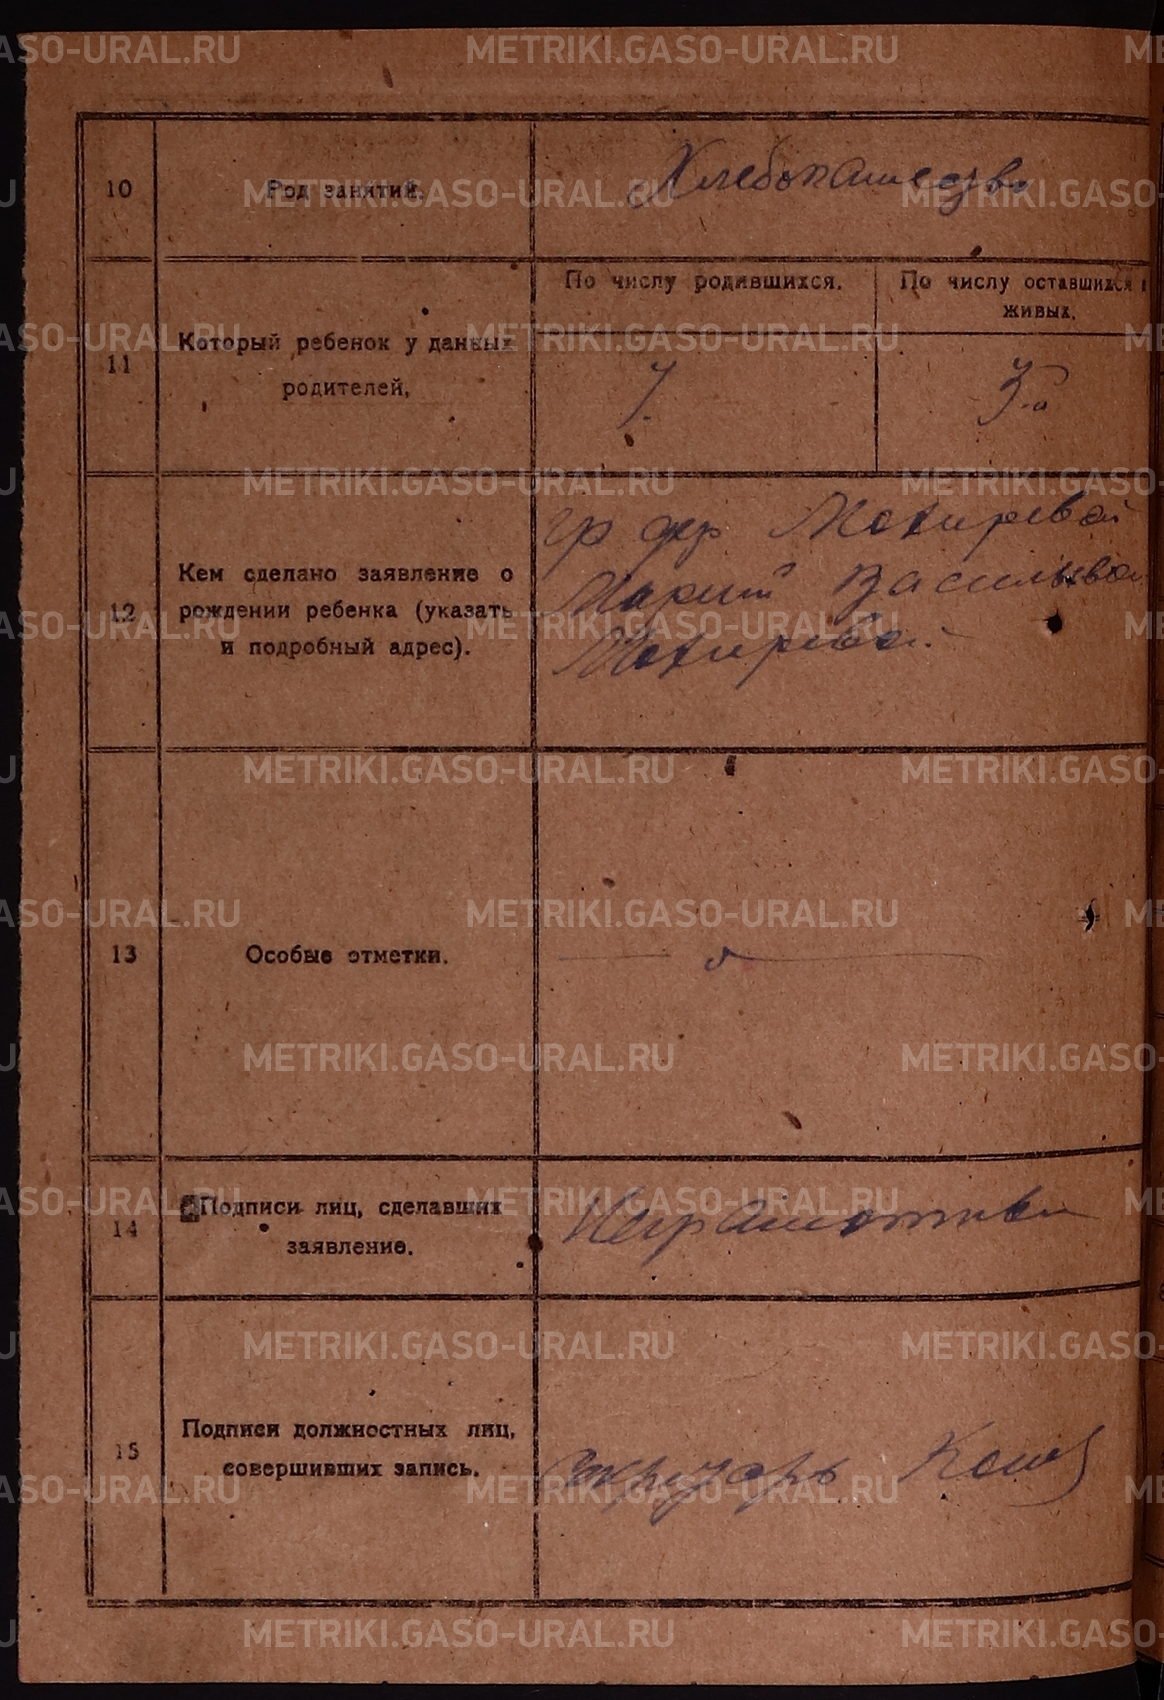 10
Род занятий.
Хлебопашество
11
Который ребенок у данных
родителей,
По числу родившихся.
По числу оставшихся
живых.
7.
3-й
12
Кем сделано заявление о
рождении ребенка (указать
и подробный адрес).
гр дер Мокиревой
Марией Васильевой
Мокиревой.
13
Особые отметки.
14
Подписи лиц, сделавших
заявление.
Неграмотная
15
Подписи должностных лиц,
совершивших запись.
Секретарь
METRIKI.GASO-URAL.RU